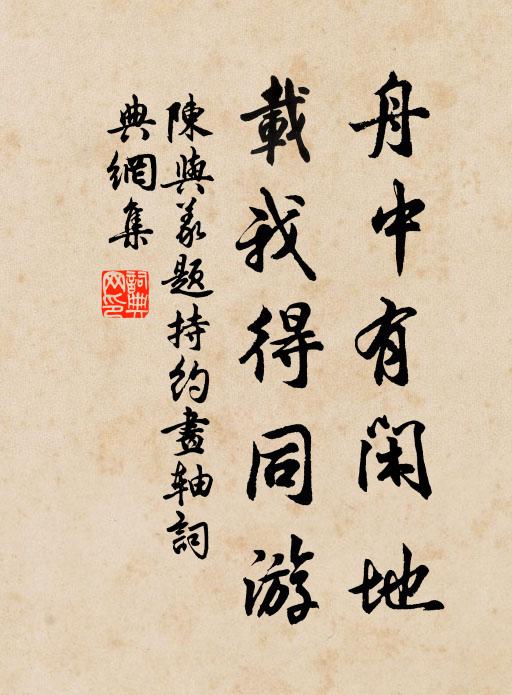 舟中有闲地
載我得同游
陳與義題持約畫軸詞
典網集
詞典网印